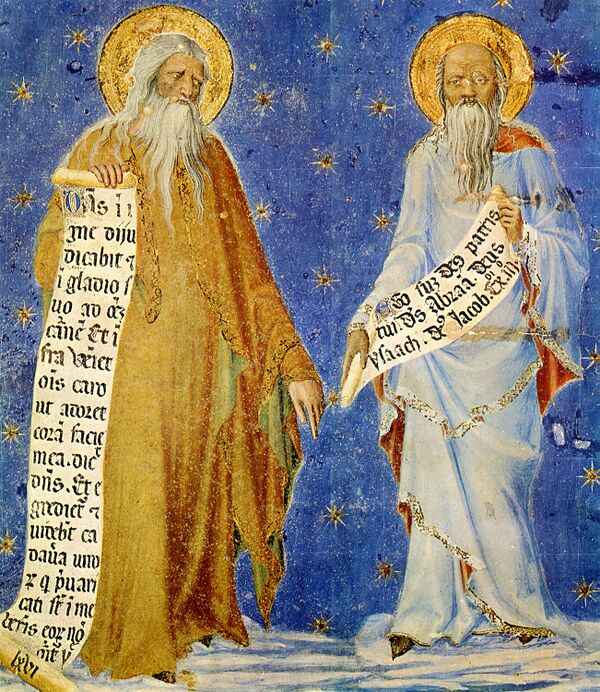 Dns i i
gne diju
dicabit ⁊
i gladio s
uo ad oēz
carnē Et i
fra Veniet
oīs caro
ut adoret
corā facie
mea. dic
dn̄s. Et e
gredient ⁊
videbt ca
davā viro
ꝝ q p̄vari
cati st̄ i me
lxvi
Ego sum ds patris
tui. Ds Abraa. Deus
ysaach. ds Jacob. Ex iii